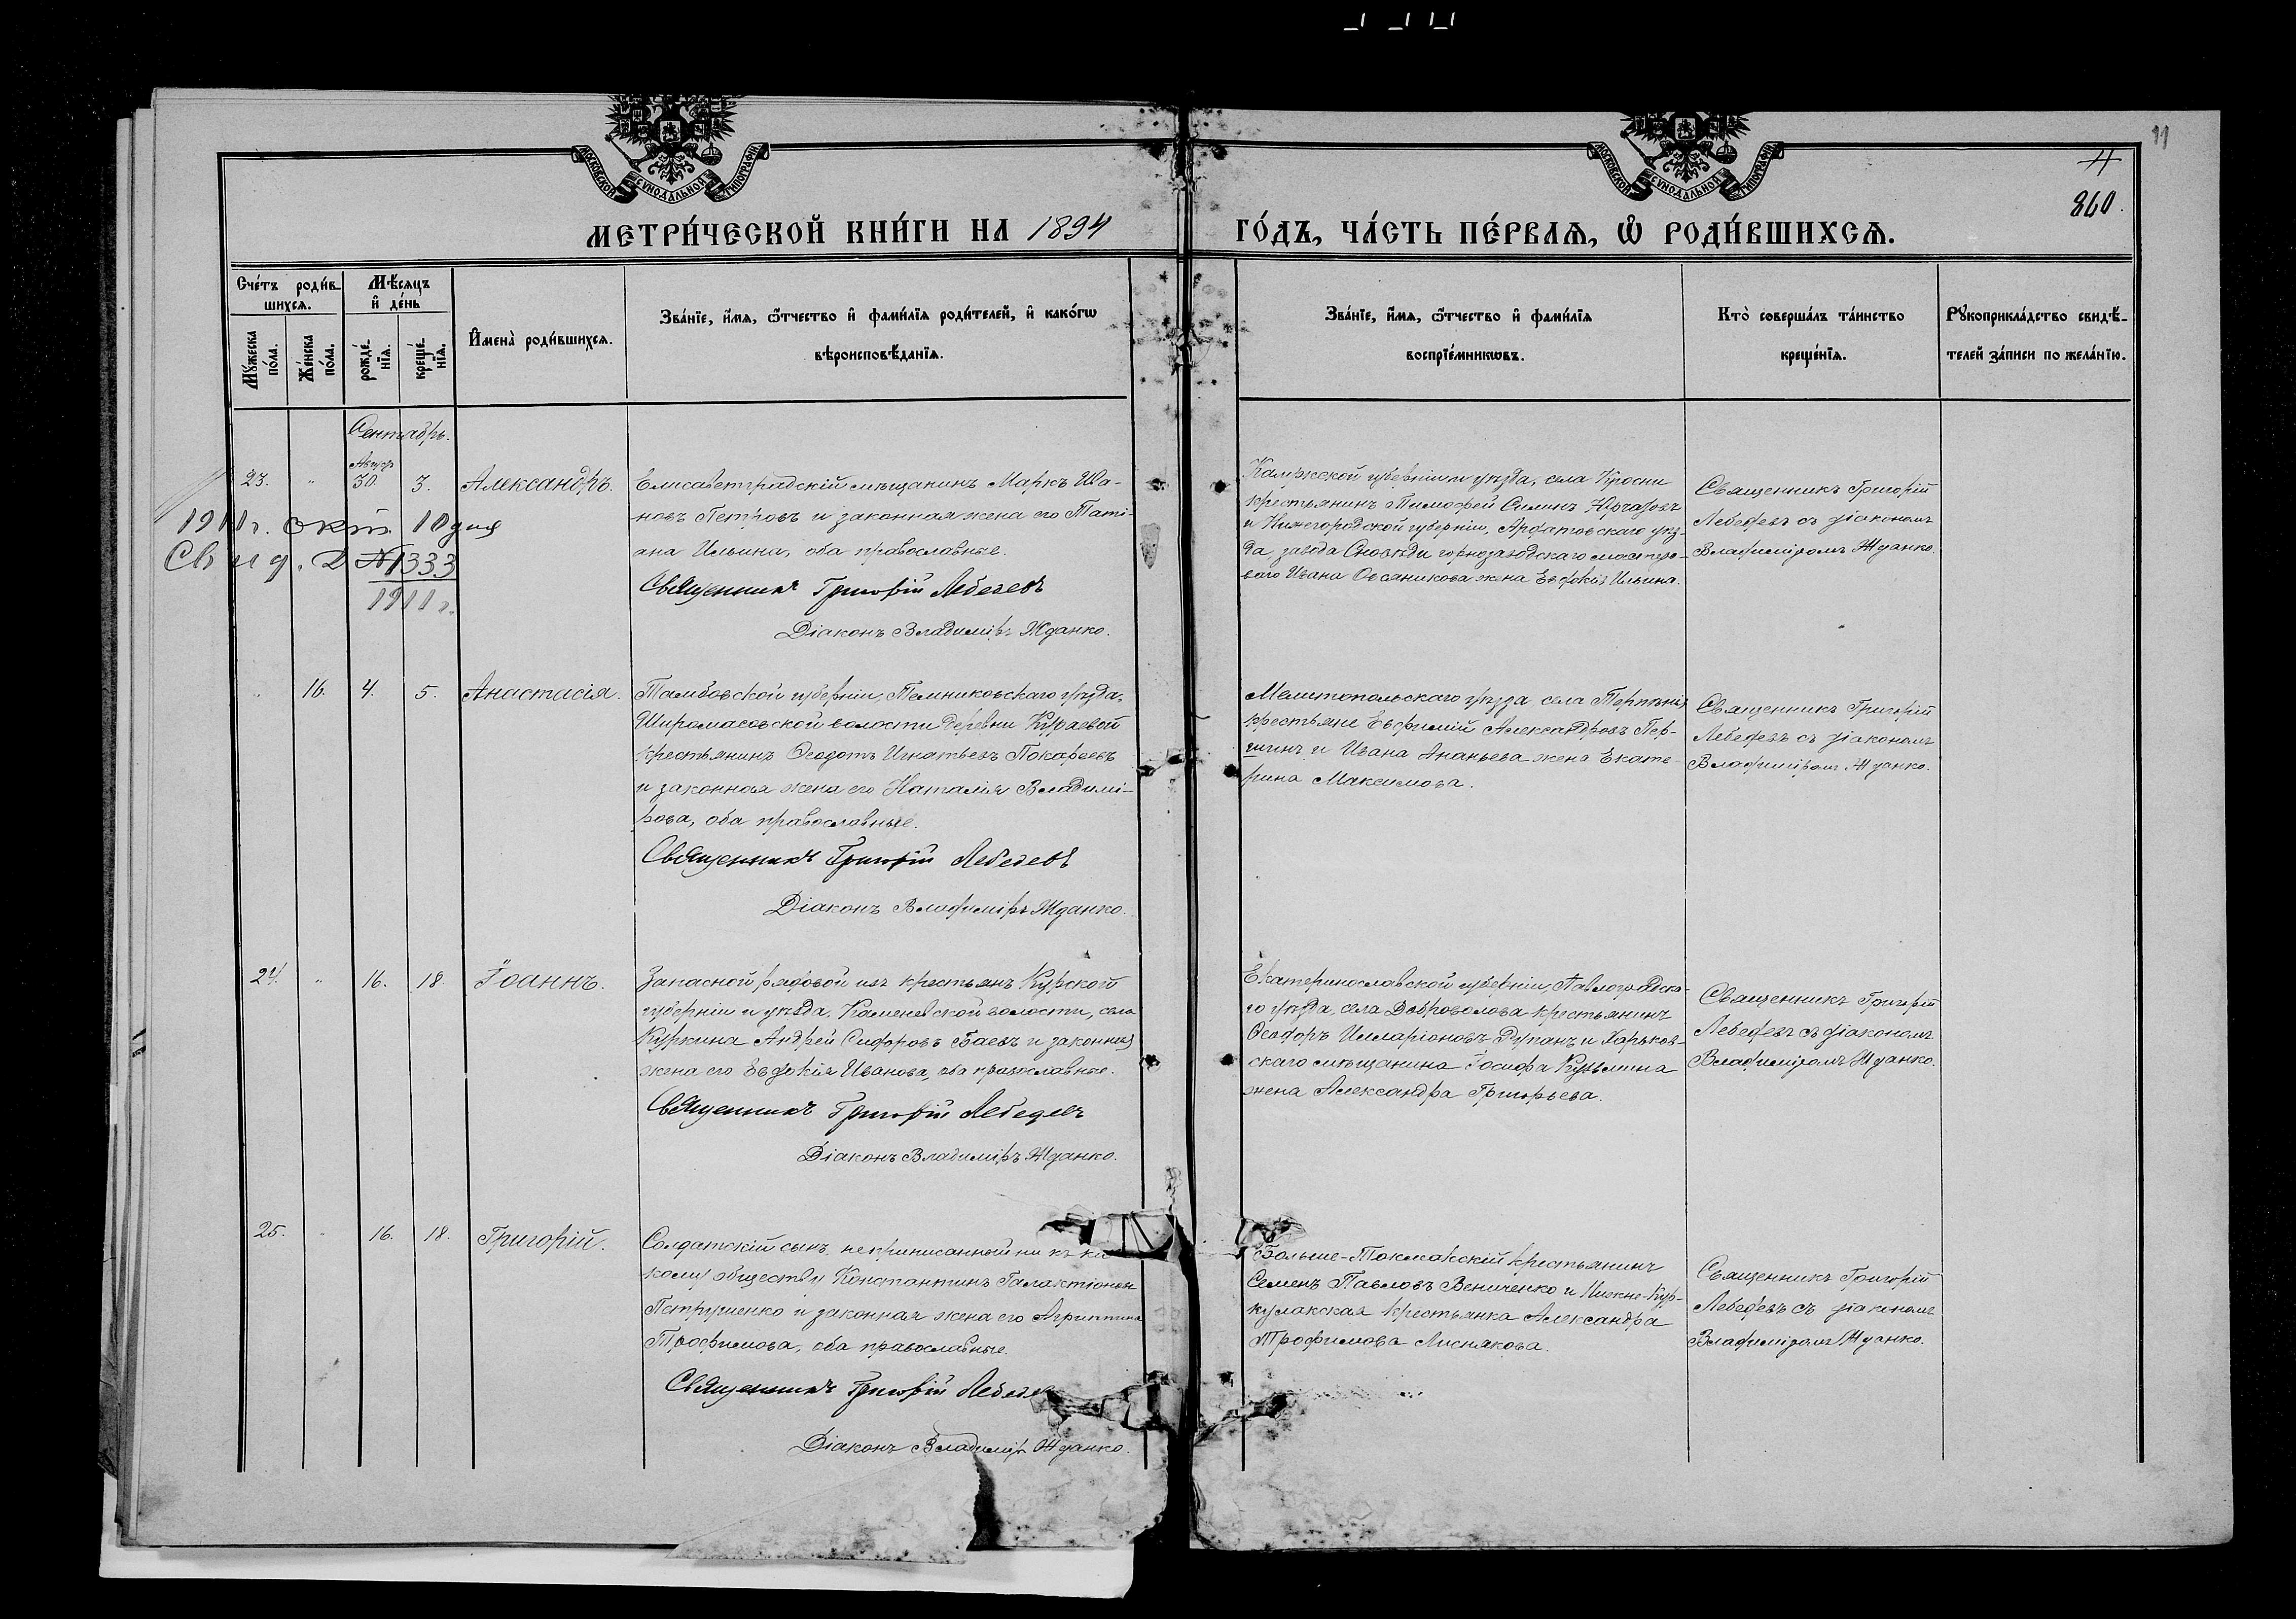 11
11
860.
МОСКОВСКОЙ СѴНОДАЛЬНОЙ ТИПОГРАФІИ
МОСКОВСКОЙ СѴНОДАЛЬНОЙ ТИПОГРАФІИ
МЕТРИ́ЧЕСКОЙ КНИ́ГИ НА 1894
ГО́ДЪ, ЧА́СТЬ ПЕ́РВАЯ, Ѡ РОДИ́ВШИХСЯ.
Сче́тъ роди́в-
шихся.
Мꙋ́жеска по́ла.
Же́нска по́ла.
Мѣ́сяцъ
и҆ де́нь
рожде́-
нїя.
креще́-
нїя.
И҆мена̀ роди́вшихся.
Зва́нїе, и҆́мя, ѻ҆́тчество и҆ фами́лїя роди́телей, и҆ како́гѡ
вѣроисповѣ́данїя.
Зва́нїе, и҆́мя, ѻ҆́тчество и҆ фами́лїя
воспрїе́мникѡвъ.
Кто̀ соверша́лъ та́инство
креще́нїя.
Рꙋкоприкла́дство свидѣ́-
телей за́писи по жела́нїю.
Сентябрь.
23. " Август 30. 3. Александръ.
Елисаветградскій мѣщанинъ Маркъ Ива-
новъ Петровъ и законная жена его Таті-
ана Ильина, оба православные.
Священникъ Григорій Лебедевъ
Діаконъ Владиміръ Жданко.
1911 г. окт. 10 дня
Свид. Д №1333
1911 г.
Калужской губерніи и уѣзда, села Кросни
крестьянинъ Тимофей Силинъ
и Нижегородской губерніи, Ардатовскаго уѣз-
да, завода Сноведи горнозаводскаго мастеро-
ваго Ивана Овсяникова жена Евдокія Ильина.
Священникъ Григорій
Лебедевъ съ діакономъ
Владиміромъ Жданко.
" 16. 4. 5. Анастасія.
Тамбовской губерніи, Темниковскаго уѣзда,
Широмасовской волости деревни Кураевой
крестьянинъ Ѳеодотъ Игнатьевъ Токаревъ
и законная жена его Наталія Владимі-
рова, оба православные.
Священникъ Григорій Лебедевъ
Діаконъ Владиміръ Жданко.
Мелитопольскаго уѣзда села Терпѣнія
крестьяне Евфимій Александровъ Пер-
шинъ и Ивана Ананьева жена Екате-
рина Максимова.
Священникъ Григорій
Лебедевъ съ діакономъ
Владиміромъ Жданко.
24. " 16. 18. Іоаннъ.
Запасной рядовой изъ крестьянъ Курской
губерніи и уѣзда, Каменевской волости, села
Куркина Андрей Сидоровъ Баевъ и законная
жена его Евдокія Иванова, оба православные.
Священникъ Григорій Лебедевъ
Діаконъ Владиміръ Жданко.
Екатеринославской губерніи, Павлоградска-
го уѣзда, села Доброволова крестьянинъ
Ѳеодоръ Илларіоновъ Рупанъ и Харьков-
скаго мѣщанина Іосифа Кузьмина
жена Александра Григорьева.
Священникъ Григорій
Лебедевъ съ діакономъ
Владиміромъ Жданко.
25. " 16. 18. Григорій.
Солдатскій сынъ, неприписанный ни къ ка-
кому обществу Константинъ Галактіоновъ
Петрушенко и законная жена его Агриппина
Трофимова, оба православные.
Священникъ Григорій Лебедев
Діаконъ Владиміръ Жданко.
Больше-Токмакскій крестьянинъ
Семенъ Павловъ Вениченко и Нижне-Кур-
кулакская крестьянка Александра
Трофимова Лиснякова.
Священникъ Григорій
Лебедевъ съ діакономъ
Владиміромъ Жданко.